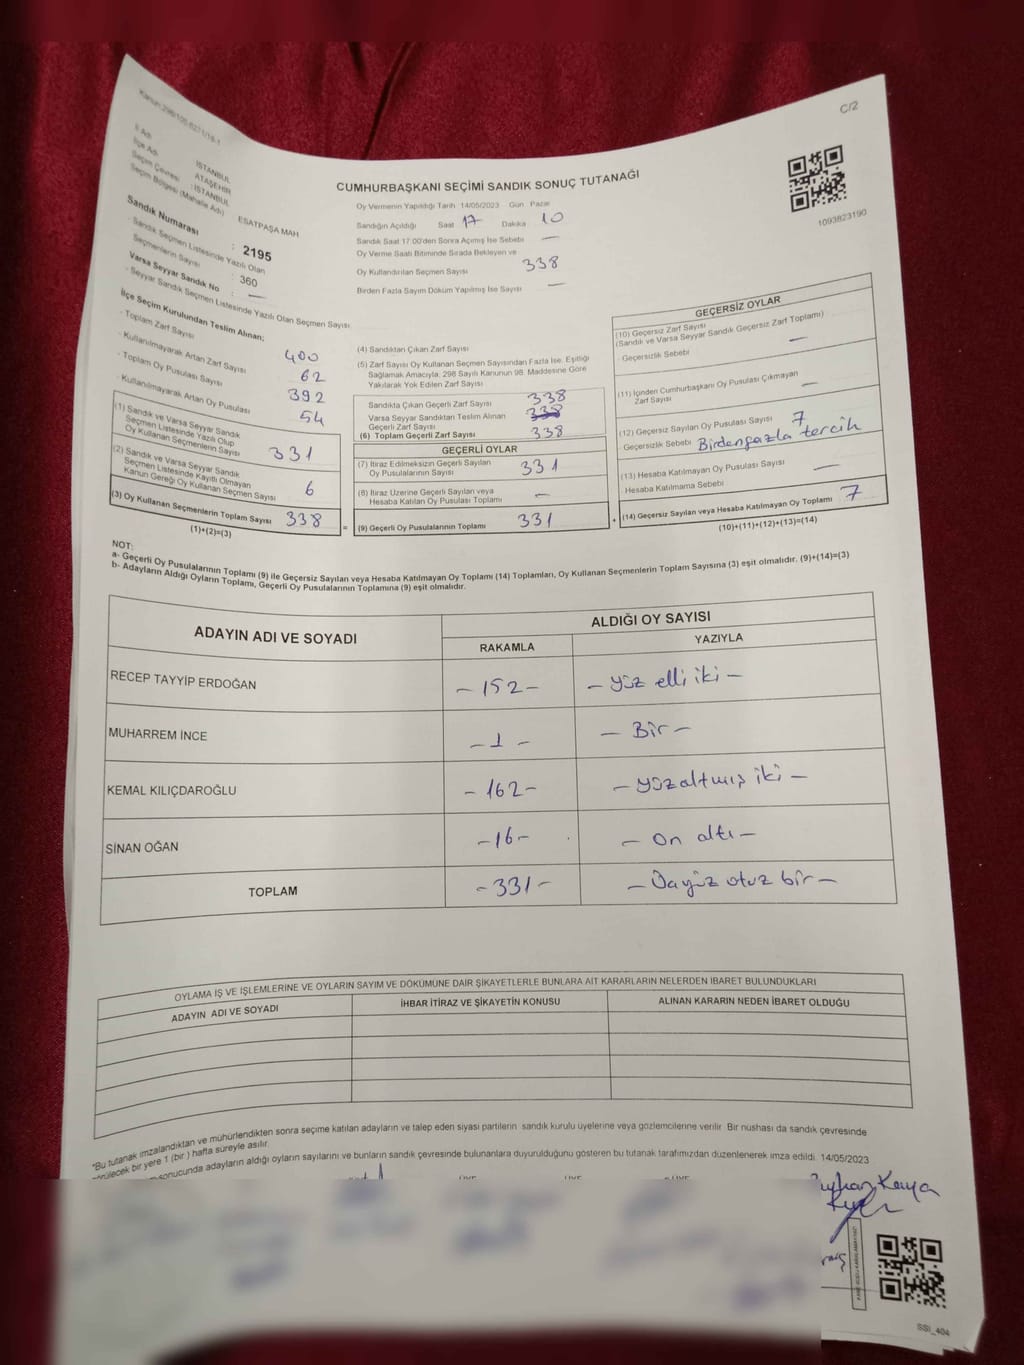 Kanun:298/105-6271/16-1
C/2
İl Adı : İSTANBUL
İlçe Adı : ATAŞEHİR
Seçim Çevresi : İSTANBUL
Seçim Bölgesi (Mahalle Adı) ESATPAŞA MAH
Sandık Numarası : 2195
- Sandık Seçmen Listesinde Yazılı Olan Seçmenlerin Sayısı : 360
Varsa Seyyar Sandık No : —
- Seyyar Sandık Seçmen Listesinde Yazılı Olan Seçmen Sayısı
CUMHURBAŞKANI SEÇİMİ SANDIK SONUÇ TUTANAĞI
Oy Vermenin Yapıldığı Tarih 14/05/2023 Gün Pazar
Sandığın Açıldığı Saat 17 Dakika 10
Sandık Saat 17.00'den Sonra Açımış İse Sebebi —
Oy Verme Saati Bitiminde Sırada Bekleyen ve
Oy Kullandırılan Seçmen Sayısı 338
Birden Fazla Sayım Döküm Yapılmış İse Sayısı —
1093823190
İlçe Seçim Kurulundan Teslim Alınan;
- Toplam Zarf Sayısı 400
- Kullanılmayarak Artan Zarf Sayısı 62
- Toplam Oy Pusulası Sayısı 392
- Kullanılmayarak Artan Oy Pusulası 54
(1) Sandık ve Varsa Seyyar Sandık
Seçmen Listesinde Yazılı Olup
Oy Kullanan Seçmenlerin Sayısı 331
(2) Sandık ve Varsa Seyyar Sandık
Seçmen Listesinde Kayıtlı Olmayan
Kanun Gereği Oy Kullanan Seçmen Sayısı 6
(3) Oy Kullanan Seçmenlerin Toplam Sayısı 338 =
(1)+(2)=(3)
(4) Sandıktan Çıkan Zarf Sayısı
(5) Zarf Sayısı Oy Kullanan Seçmen Sayısından Fazla İse, Eşitliği
Sağlamak Amacıyla, 298 Sayılı Kanunun 98. Maddesine Göre
Yakılarak Yok Edilen Zarf Sayısı
Sandıkta Çıkan Geçerli Zarf Sayısı 338
Varsa Seyyar Sandıktan Teslim Alınan
Geçerli Zarf Sayısı 338
(6) Toplam Geçerli Zarf Sayısı 338
GEÇERLİ OYLAR
(7) İtiraz Edilmeksizin Geçerli Sayılan
Oy Pusulalarının Sayısı 331
(8) İtiraz Üzerine Geçerli Sayılan veya
Hesaba Katılan Oy Pusulası Toplamı —
(9) Geçerli Oy Pusulalarının Toplamı 331 +
GEÇERSİZ OYLAR
(10) Geçersiz Zarf Sayısı
(Sandık ve Varsa Seyyar Sandık Geçersiz Zarf Toplamı)
- Geçersizlik Sebebi —
(11) İçinden Cumhurbaşkanı Oy Pusulası Çıkmayan
Zarf Sayısı —
(12) Geçersiz Sayılan Oy Pusulası Sayısı 7
Geçersizlik Sebebi Birdenfazla tercih
(13) Hesaba Katılmayan Oy Pusulası Sayısı —
Hesaba Katılmama Sebebi
(14) Geçersiz Sayılan veya Hesaba Katılmayan Oy Toplamı 7
(10)+(11)+(12)+(13)=(14)
NOT:
a- Geçerli Oy Pusulalarının Toplamı (9) ile Geçersiz Sayılan veya Hesaba Katılmayan Oy Toplamı (14) Toplamları, Oy Kullanan Seçmenlerin Toplam Sayısına (3) eşit olmalıdır. (9)+(14)=(3)
b- Adayların Aldığı Oyların Toplamı, Geçerli Oy Pusulalarının Toplamına (9) eşit olmalıdır.
ADAYIN ADI VE SOYADI ALDIĞI OY SAYISI
RAKAMLA YAZIYLA
RECEP TAYYİP ERDOĞAN – 152 – – yüz elli iki –
MUHARREM İNCE – 1 – – Bir –
KEMAL KILIÇDAROĞLU – 162 – – yüzaltmış iki –
SİNAN OĞAN – 16 – – On altı –
TOPLAM – 331 – – Üçyüz otuz bir –
OYLAMA İŞ VE İŞLEMLERİNE VE OYLARIN SAYIM VE DÖKÜMÜNE DAİR ŞİKAYETLERLE BUNLARA AİT KARARLARIN NELERDEN İBARET BULUNDUKLARI
ADAYIN ADI VE SOYADI İHBAR İTİRAZ VE ŞİKAYETİN KONUSU ALINAN KARARIN NEDEN İBARET OLDUĞU
"Bu tutanak imzalandıktan ve mühürlendikten sonra seçime katılan adayların ve talep eden siyasi partilerin sandık kurulu üyelerine veya gözlemcilerine verilir. Bir nüshası da sandık çevresinde
görülecek bir yere 1 (bir) hafta süreyle asılır.
sonucunda adayların aldığı oyların sayılarını ve bunların sandık çevresinde bulunanlara duyurulduğunu gösteren bu tutanak tarafımızdan düzenlenerek imza edildi. 14/05/2023
Kaya
SSI_404